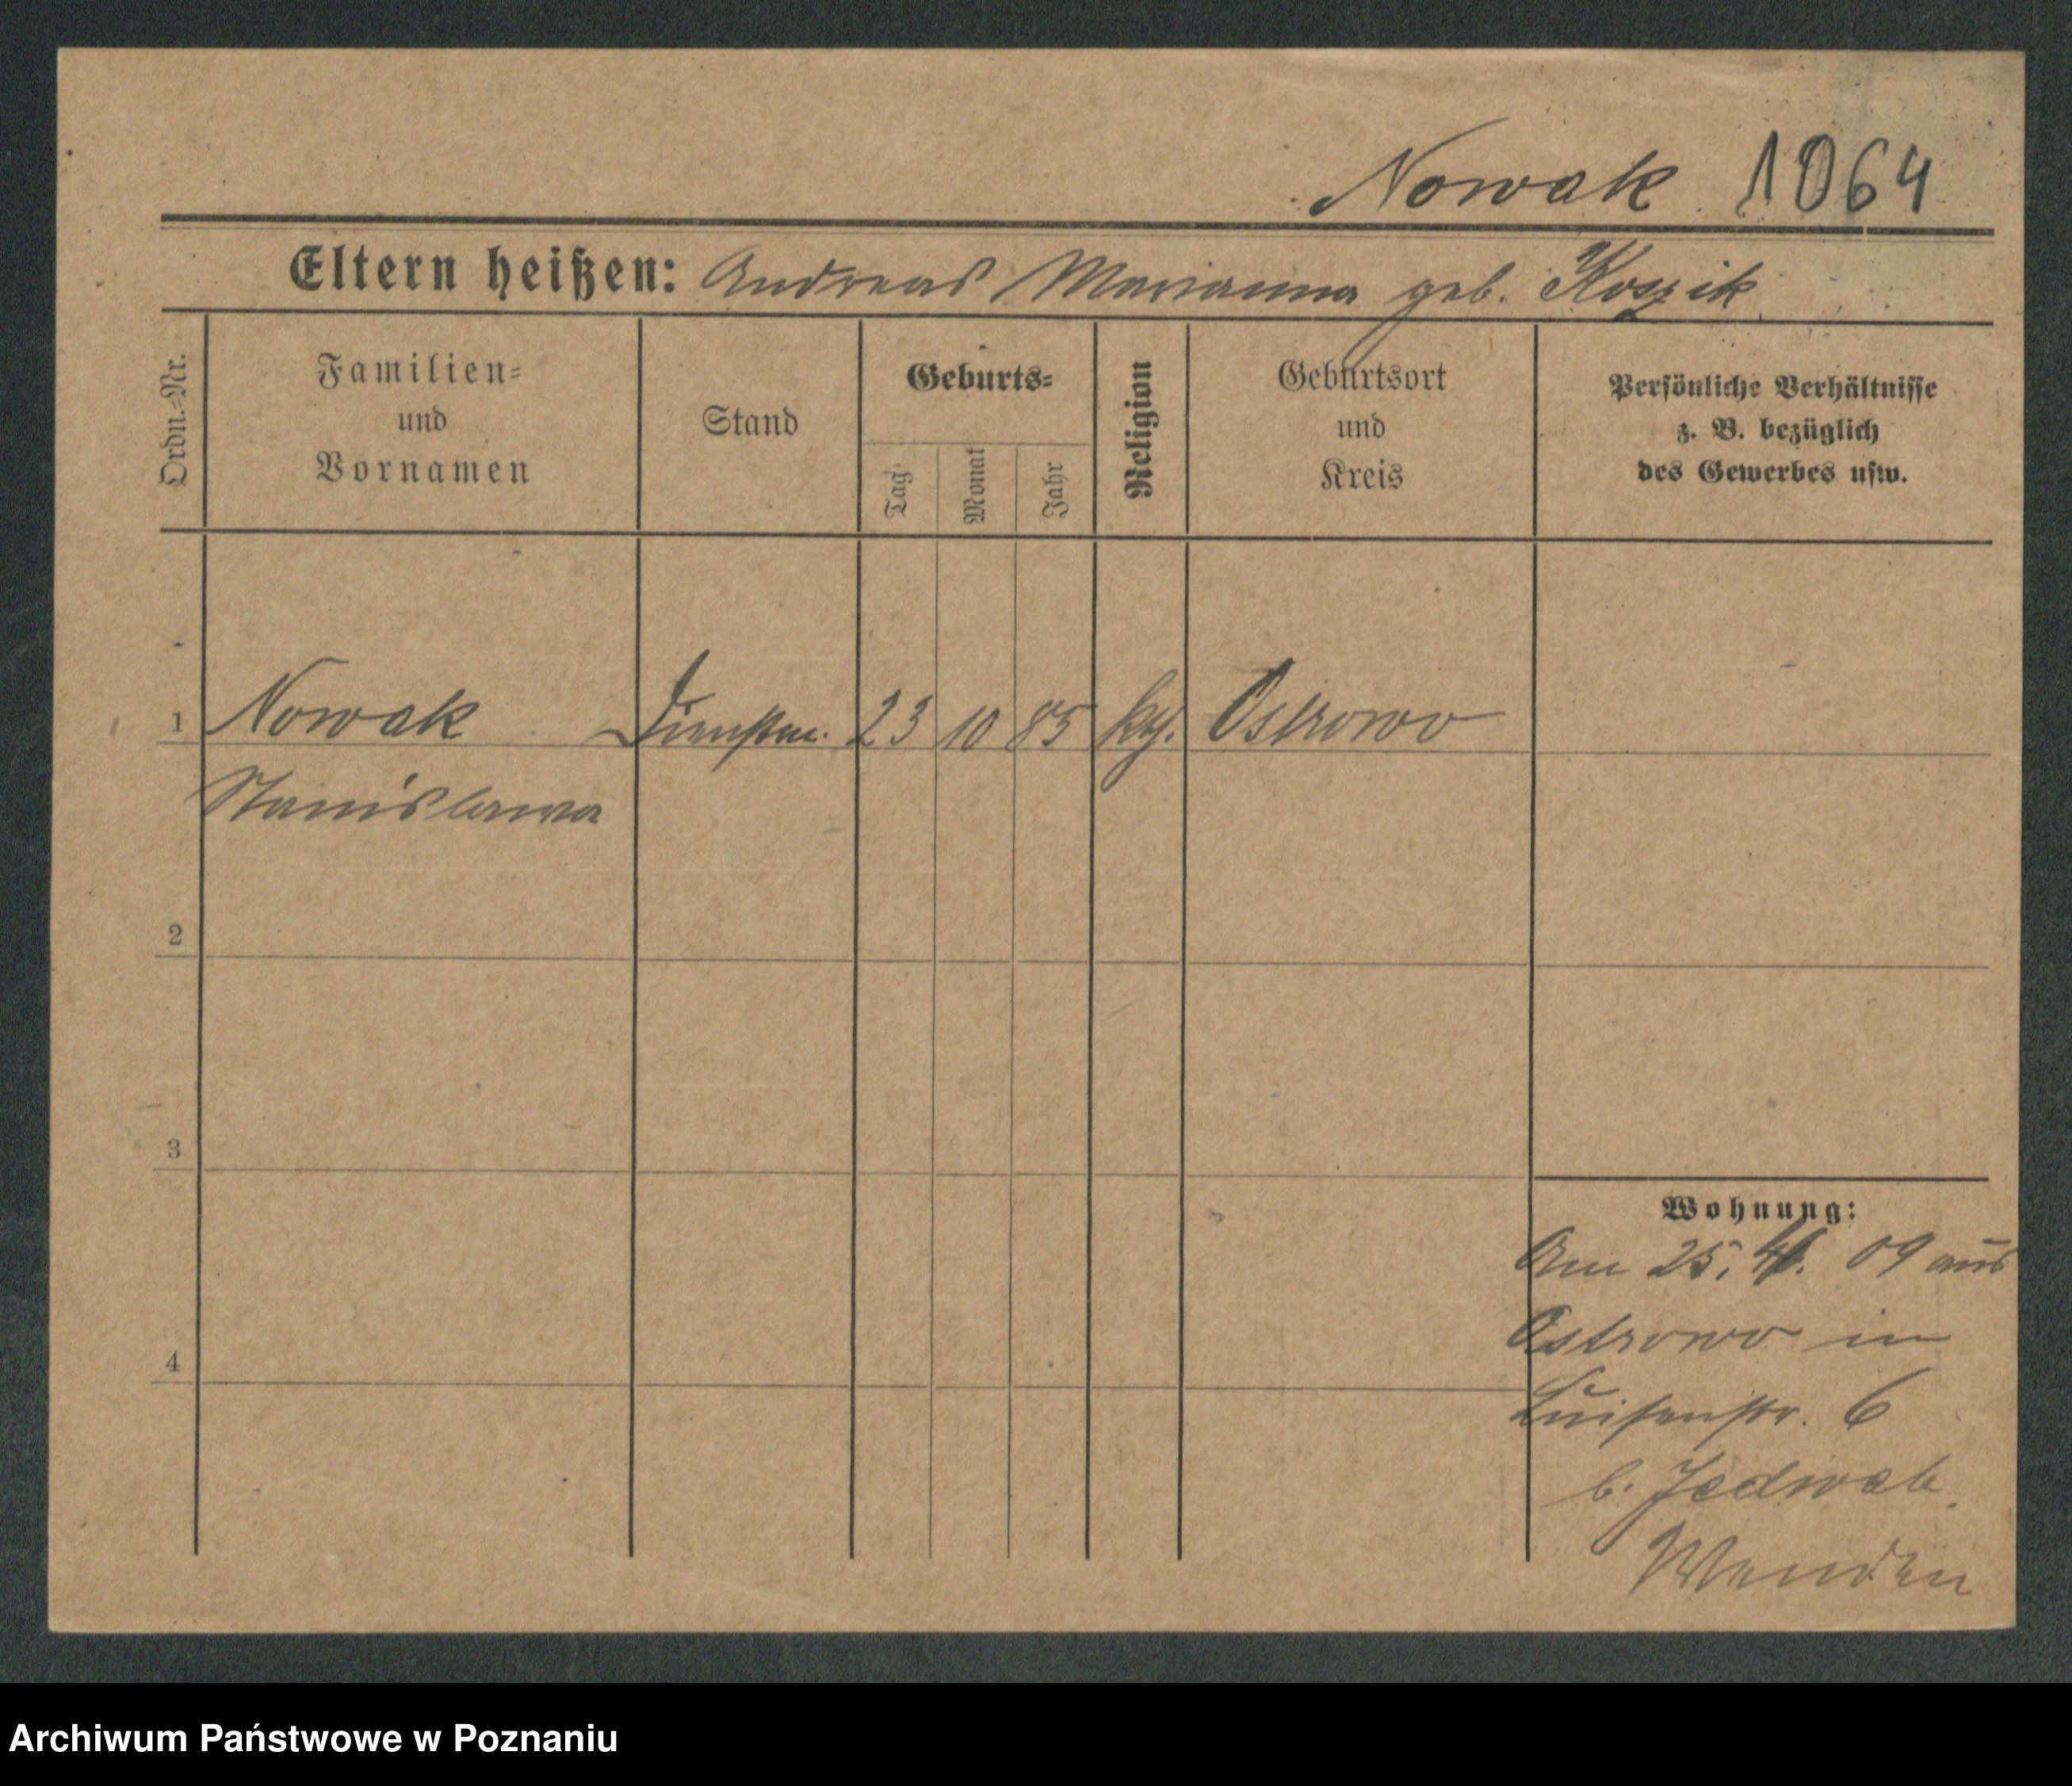 Nowak 1064
Eltern heißen: Andreas Marianna geb. Koszik
Ordn.-Nr.
Familien-
und
Vornamen
Stand
Geburts-
Tag
Monat
Jahr
Religion
Geburtsort
und
Kreis
Persönliche Verhältnisse
z. B. bezüglich
des Gewerbes usw.
1 Nowak Dienstm. 23 10 85 kth. Ostrowo
Stanislawa
2
3
4
Wohnung:
Am 25. 4. 09 aus
Ostrowo in
Luisenstr. 6
b. Jedwab.
Wenden
Archiwum Państwowe w Poznaniu